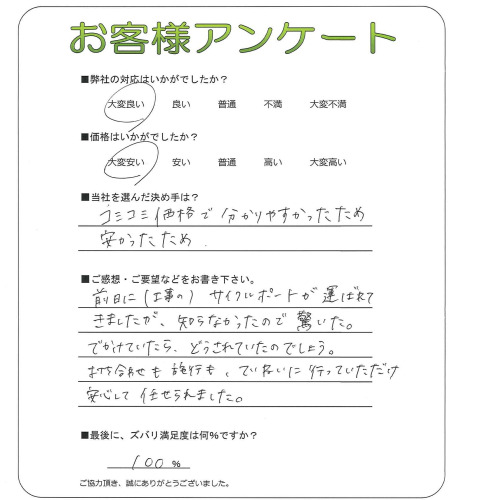 お客様アンケート
■弊社の対応はいかがでしたか?
大変良い 良い 普通 不満 大変不満
■価格はいかがでしたか?
大変安い 安い 普通 高い 大変高い
■当社を選んだ決め手は?
コミコミ価格で分かりやすかったため
安かったため.
■ご感想・ご要望などをお書き下さい。
前日に(工事の)サイクルポートが運ばれて
きましたが、知らなかったので驚いた。
でかけていたら、どうされていたのでしょう。
打ち合わせも施行も、ていねいに行っていただけ
安心して任せられました。
■最後に、ズバリ満足度は何%ですか?
100 %
ご協力頂き、誠にありがとうございました。